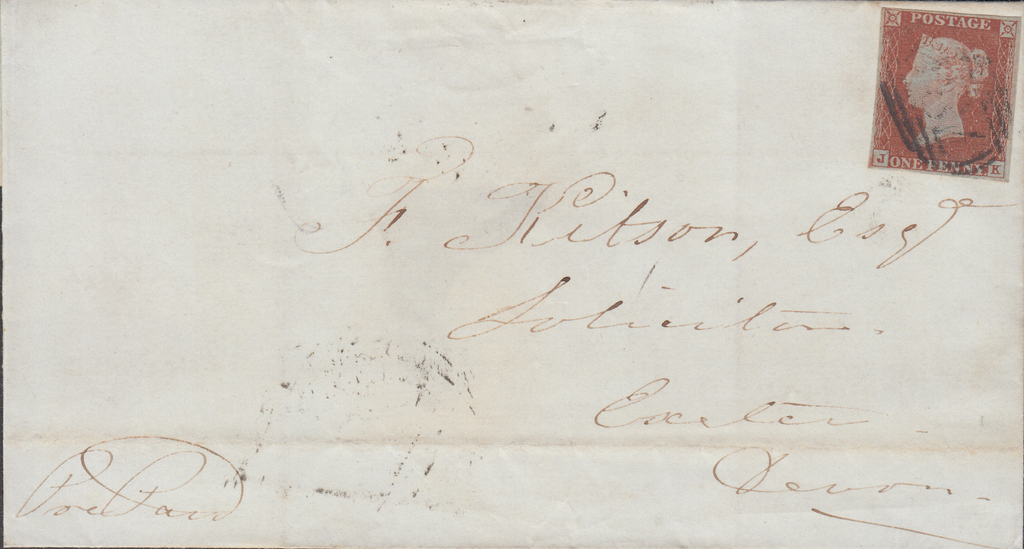 POSTAGE
J ONE PENNY K
F. Kitson, Esqre
Solicitor.
Exeter
Devon.
Pre Paid